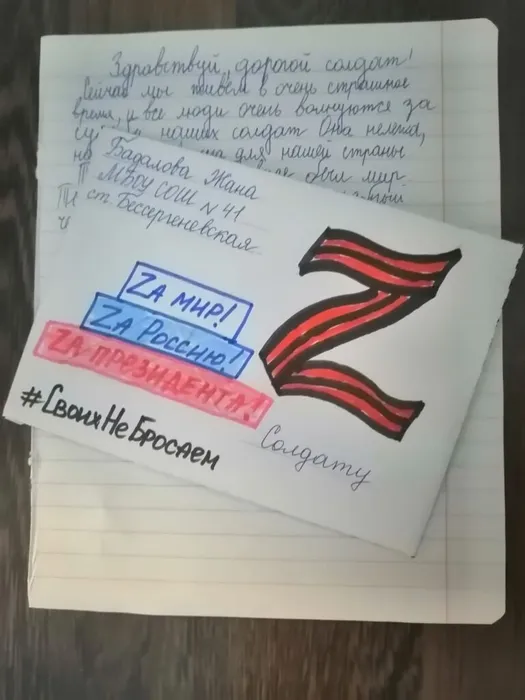 Здравствуй, дорогой солдат!
Сейчас мы живём в очень страшное
время, и все люди очень волнуются за
наших солдат Она нелегка,
для нашей страны
был мир
Бадалова Жана
МБОУ СОШ N 41
ст. Бессергеневская
Z
ZА МИР!
ZА РОССИЮ!
ZА ПРЕЗИДЕНТА!
#СвоихНеБросаем
Солдату